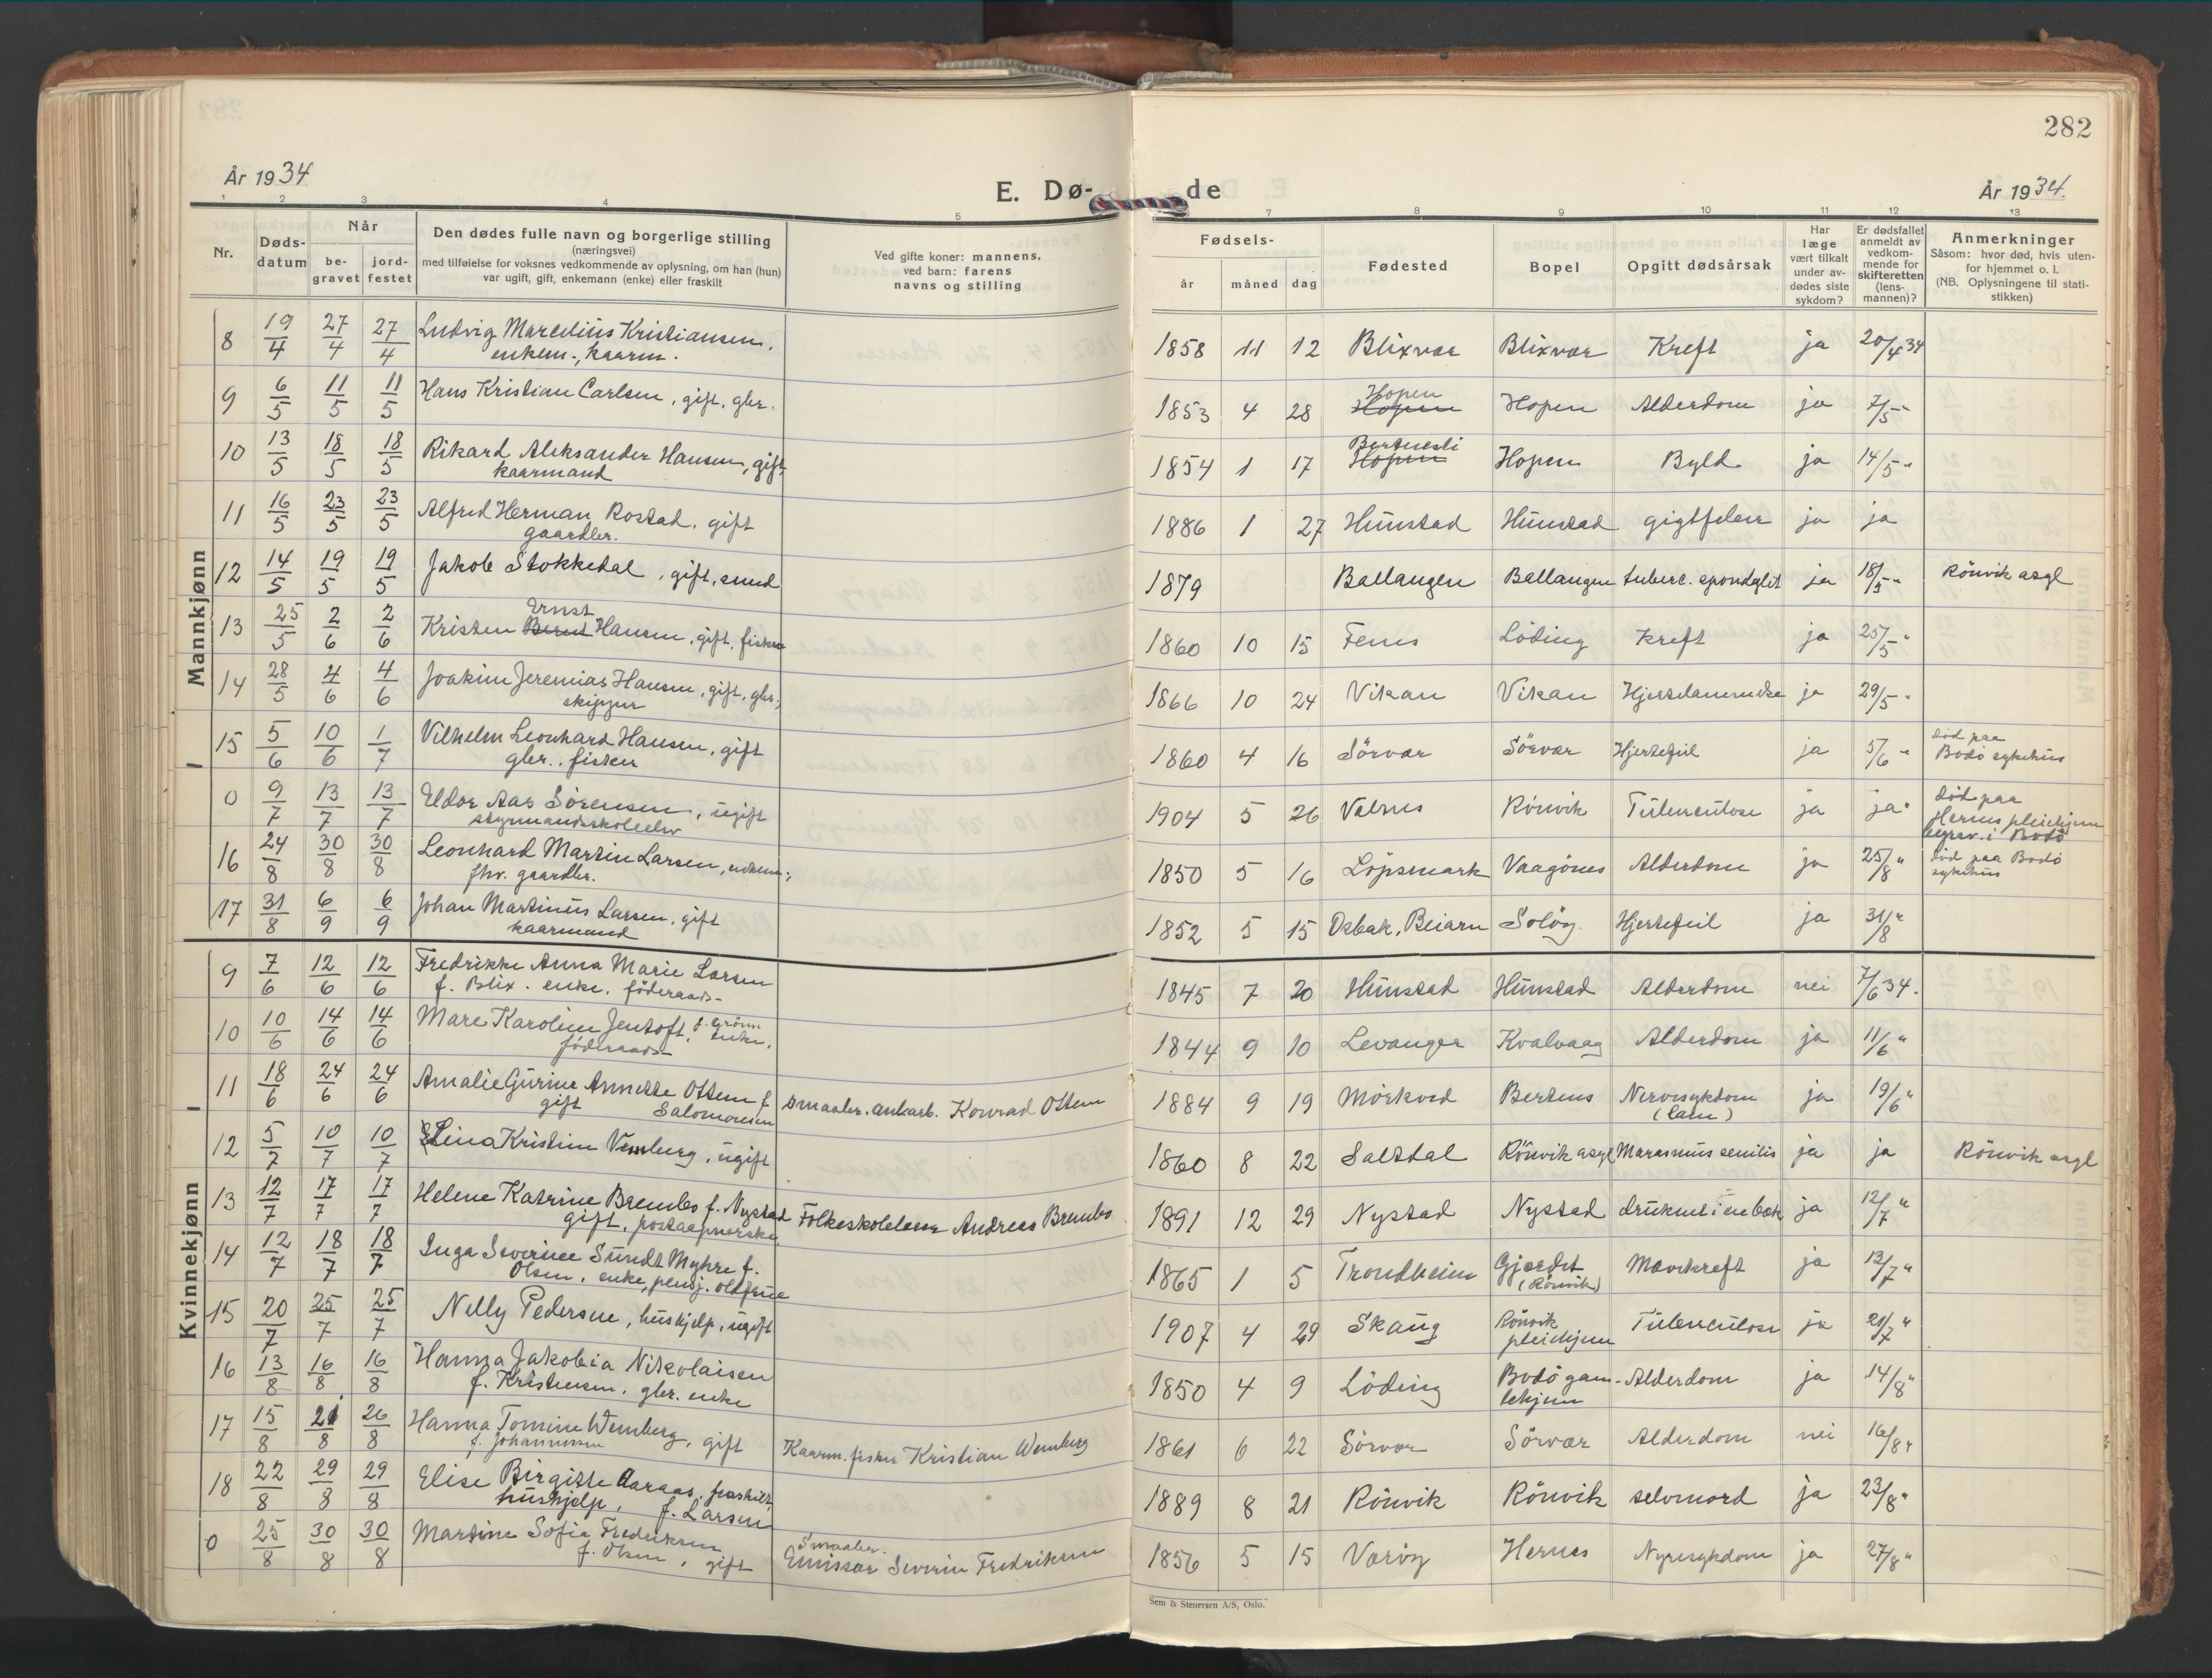 282
År 1934
E. Dø-
de
År 1934.
1 2 3 4 5 7 8 9 10 11 12 13
Nr.
Døds-
datum
Når
be-
gravet
jord-
festet
Den dødes fulle navn og borgerlige stilling
(næringsvei)
med tilføielse for voksnes vedkommende av oplysning, om han (hun)
var ugift, gift, enkemann (enke) eller fraskilt
Ved gifte koner: mannens,
ved barn: farens
navns og stilling
Fødsels-
år måned dag
Fødested
Bopel
Opgitt dødsårsak
Har
læge
vært tilkalt
under av-
dødes siste
sykdom?
Er dødsfallet
anmeldt av
vedkom-
mende for
skifteretten
(lens-
mannen)?
Anmerkninger
Såsom: hvor død, hvis uten-
for hjemmet o. l.
(NB. Oplysningene til stati-
stikken)
Mannkjønn
8 19/4 27/4 27/4 Ludvig Marcelius Kristiansen, 1858 11 12 Blixvær Blixvær Kreft ja 20/4 34
enkem., kaarm.
9 6/5 11/5 11/5 Hans Kristian Carlsen, gift, gbr. 1853 4 28 Hopen Hopen Hopen Alderdom ja 7/5 "
10 13/5 18/5 18/5 Rikard Aleksander Hansen, gift 1854 1 17 Hopen Hopen Byld ja 14/5 "
kaarmand
11 16/5 23/5 23/5 Alfred Herman Rostad, gift 1886 1 27 Hunstad Hunstad gigtfeber ja ja
gaardbr.
12 14/5 19/5 19/5 Jakob Stokkedal, gift, smed 1879 Ballangen Ballangen tuberc. spondylit ja 18/5 " Rönvik asyl
Ernst
13 25/5 2/6 2/6 Kristen Bernt Hansen, gift, fisker 1860 10 15 Fenes Löding Kreft ja 25/5 "
14 28/5 4/6 4/6 Joakim Jeremias Hansen, gift, gbr., 1866 10 24 Vikan Vikan Hjertelammelse ja 29/5 "
skipper
15 5/6 10/6 1/7 Vilhelm Leonhard Hansen, gift 1860 4 16 Sörvær Sörvær Hjertefeil ja 5/6 " död paa
gbr., fisker Bodö sykehus
0 9/7 13/7 13/7 Eldor Aas Sörensen, ugift 1904 5 26 Valnes Rönvik Tuberculose ja ja " död paa
styrmandsskoleelev Hernes pleiehjem
begrav. i Bodö
16 24/8 30/8 30/8 Leonhard Martin Larsen, enkem., 1850 5 16 Löpsmark Vaagönes Alderdom ja 25/8 " död paa Bodö
fhv. gaardbr. sykehus
17 31/8 6/9 6/9 Johan Martinus Larsen, gift 1852 5 15 Osbak, Beiarn Solöy Hjertefeil ja 31/8 "
kaarmand
Kvinnekjønn
9 7/6 12/6 12/6 Fredrikke Anna Marie Larsen 1845 7 20 Hunstad Hunstad Alderdom nei 7/6 34.
f. Blix. enke. föderaads-
10 10/6 14/6 14/6 Mare Karoline Jentoft, f. Grönn 1844 9 10 Levanger Kvalvaag Alderdom ja 11/6 "
enke, föderaads-
11 18/6 24/6 24/6 Amalie Gurine Annette Ottem f. smaabr. ankarb. Konrad Ottem 1884 9 19 Mörkved Bertnes Nervesykdom ja 19/6 "
gift Salomonsen (Lam)
12 5/7 10/7 10/7 Lina Kristine Vemburg, ugift 1860 8 22 Saltdal Rönvik asyl Marasmus senilis ja ja Rönvik asyl
13 12/7 17/7 17/7 Helene Katrine Brembo f. Nystad Folkeskolelærer Andreas Brembo 1891 12 29 Nystad Nystad druknet i en bæk ja 12/7 "
gift, postaapnerske
14 12/7 18/7 18/7 Inga Severine Sundt Myhre f. 1865 1 5 Trondheim Gjærdet Mavekreft ja 13/7 "
Olsen, enke, pensj. oldfrue (Rönvik)
15 20/7 25/7 25/7 Nelly Pedersen, hushjelp, ugift 1907 4 29 Skaug Rönvik Tuberculose ja 21/7 "
pleiehjem
16 13/8 16/8 16/8 Hanna Jakobia Nikolaisen 1850 4 9 Löding Bodö gam- Alderdom ja 14/8 "
f. Kristensen, gbr. enke lehjem
17 15/8 21/8 26/8 Hanna Tomine Wemberg, gift Kaarm. fisker Kristian Wemberg 1861 6 22 Sörvær Sörvær Alderdom nei 16/8 "
f. Johannesen
18 22/8 29/8 29/8 Elise Birgitte Aaraas, fraskilt, 1889 8 21 Rönvik Rönvik selvmord ja 23/8 "
hushjelp, f. Larsen
0 25/8 30/8 30/8 Martine Sofie Fredriksen Smaabr. 1856 5 15 Væröy Hernes Nyresykdom ja 27/8 "
f. Olsen, gift Emissær Severin Fredriksen
Sem & Stenersen A/S, Oslo.